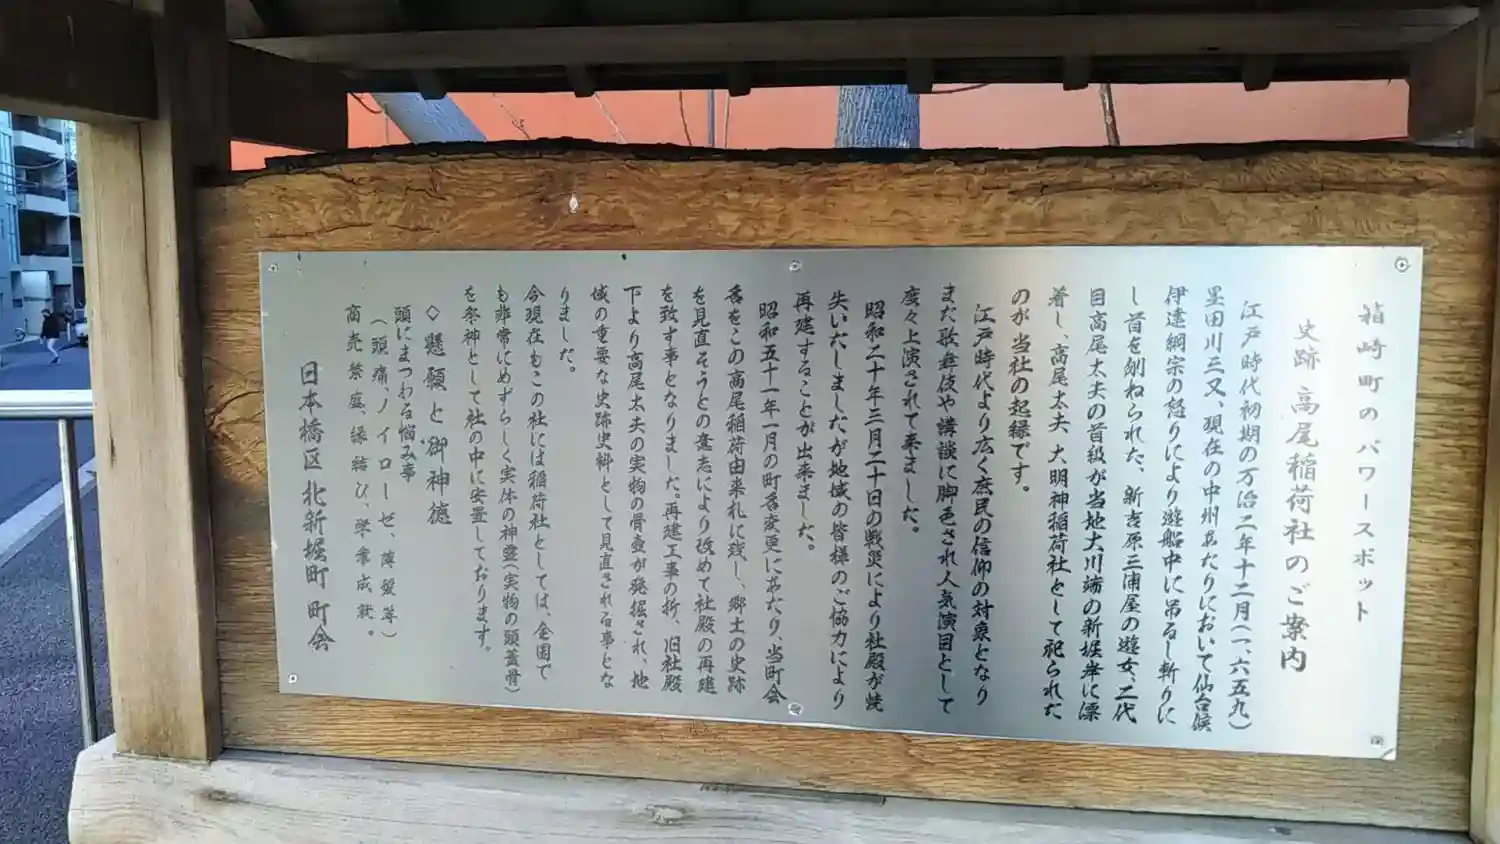 箱崎町のパワースポット
史跡 高尾稲荷社のご案内
江戸時代初期の万治二年十二月(一、六五九)
墨田川三又、現在の中州あたりにおいて仙台候
伊達綱宗の怒りにより遊船中に吊るし斬りに
し首を刎ねられた、新吉原三浦屋の遊女、二代
目高尾太夫の首級が当地大川端の新堀岸に漂
着し、高尾太夫 大明神稲荷社として祀られた
のが当社の起縁です。
江戸時代より広く庶民の信仰の対象となり
また歌舞伎や講談に脚色され人気演目として
度々上演されて来ました。
昭和二十年三月二十日の戦災により社殿が焼
失いたしましたが地域の皆様のご協力により
再建することが出来ました。
昭和五十一年一月の町舎変更にあたり、当町会
舎をこの高尾稲荷由来札に残し、郷土の史跡
を見直そうとの意志により改めて社殿の再建
を致す事となりました。再建工事の折、旧社殿
下より高尾太夫の実物の骨壺が発掘され、地
域の重要な史跡史料として見直される事とな
りました。
今現在もこの社には稲荷社としては、全国で
も非常にめずらしく実体の神霊(実物の頭蓋骨)
を祭神として社の中に安置しております。
◇懸願と御神徳
頭にまつわる悩み事
(頭痛、ノイローゼ、薄髪等)
商売繁盛、縁結び、学業成就。
日本橋区 北新堀町 町会